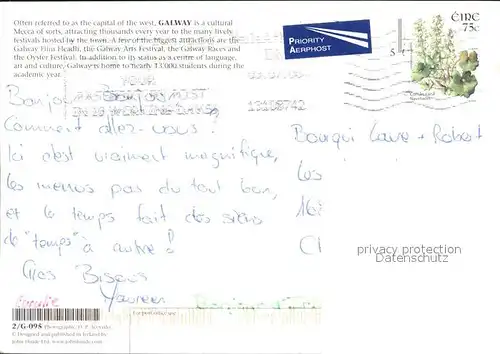 Often referred to as the capital of the west, GALWAY is a cultural
Mecca of sorts, attracting thousands every year to the many lively
festivals hosted by the town. A few of the biggest attractions are the
Galway Film Fleadh, the Galway Arts Festival, the Galway Races and
the Oyster Festival. In addition to its status as a centre of language,
art and culture, Galway is home to nearly 13,000 students during the
academic year.
PRIORITY
AERPHOST
ÉIRE
75c
5
13108742
Bonjour Bonjour
Comment allez-vous!
Ici c'est vraiment magnifique,
les menus pas du tout bon,
et le temps fait des siens
de "temps" à autre!
Gros Bisous
Maureen
Emilie
Bourqui Laure + Robert
Les
16
Ch
privacy protection
Datenschutz
2/G-095
© Designed and published in Ireland by
John Hinde Ltd.